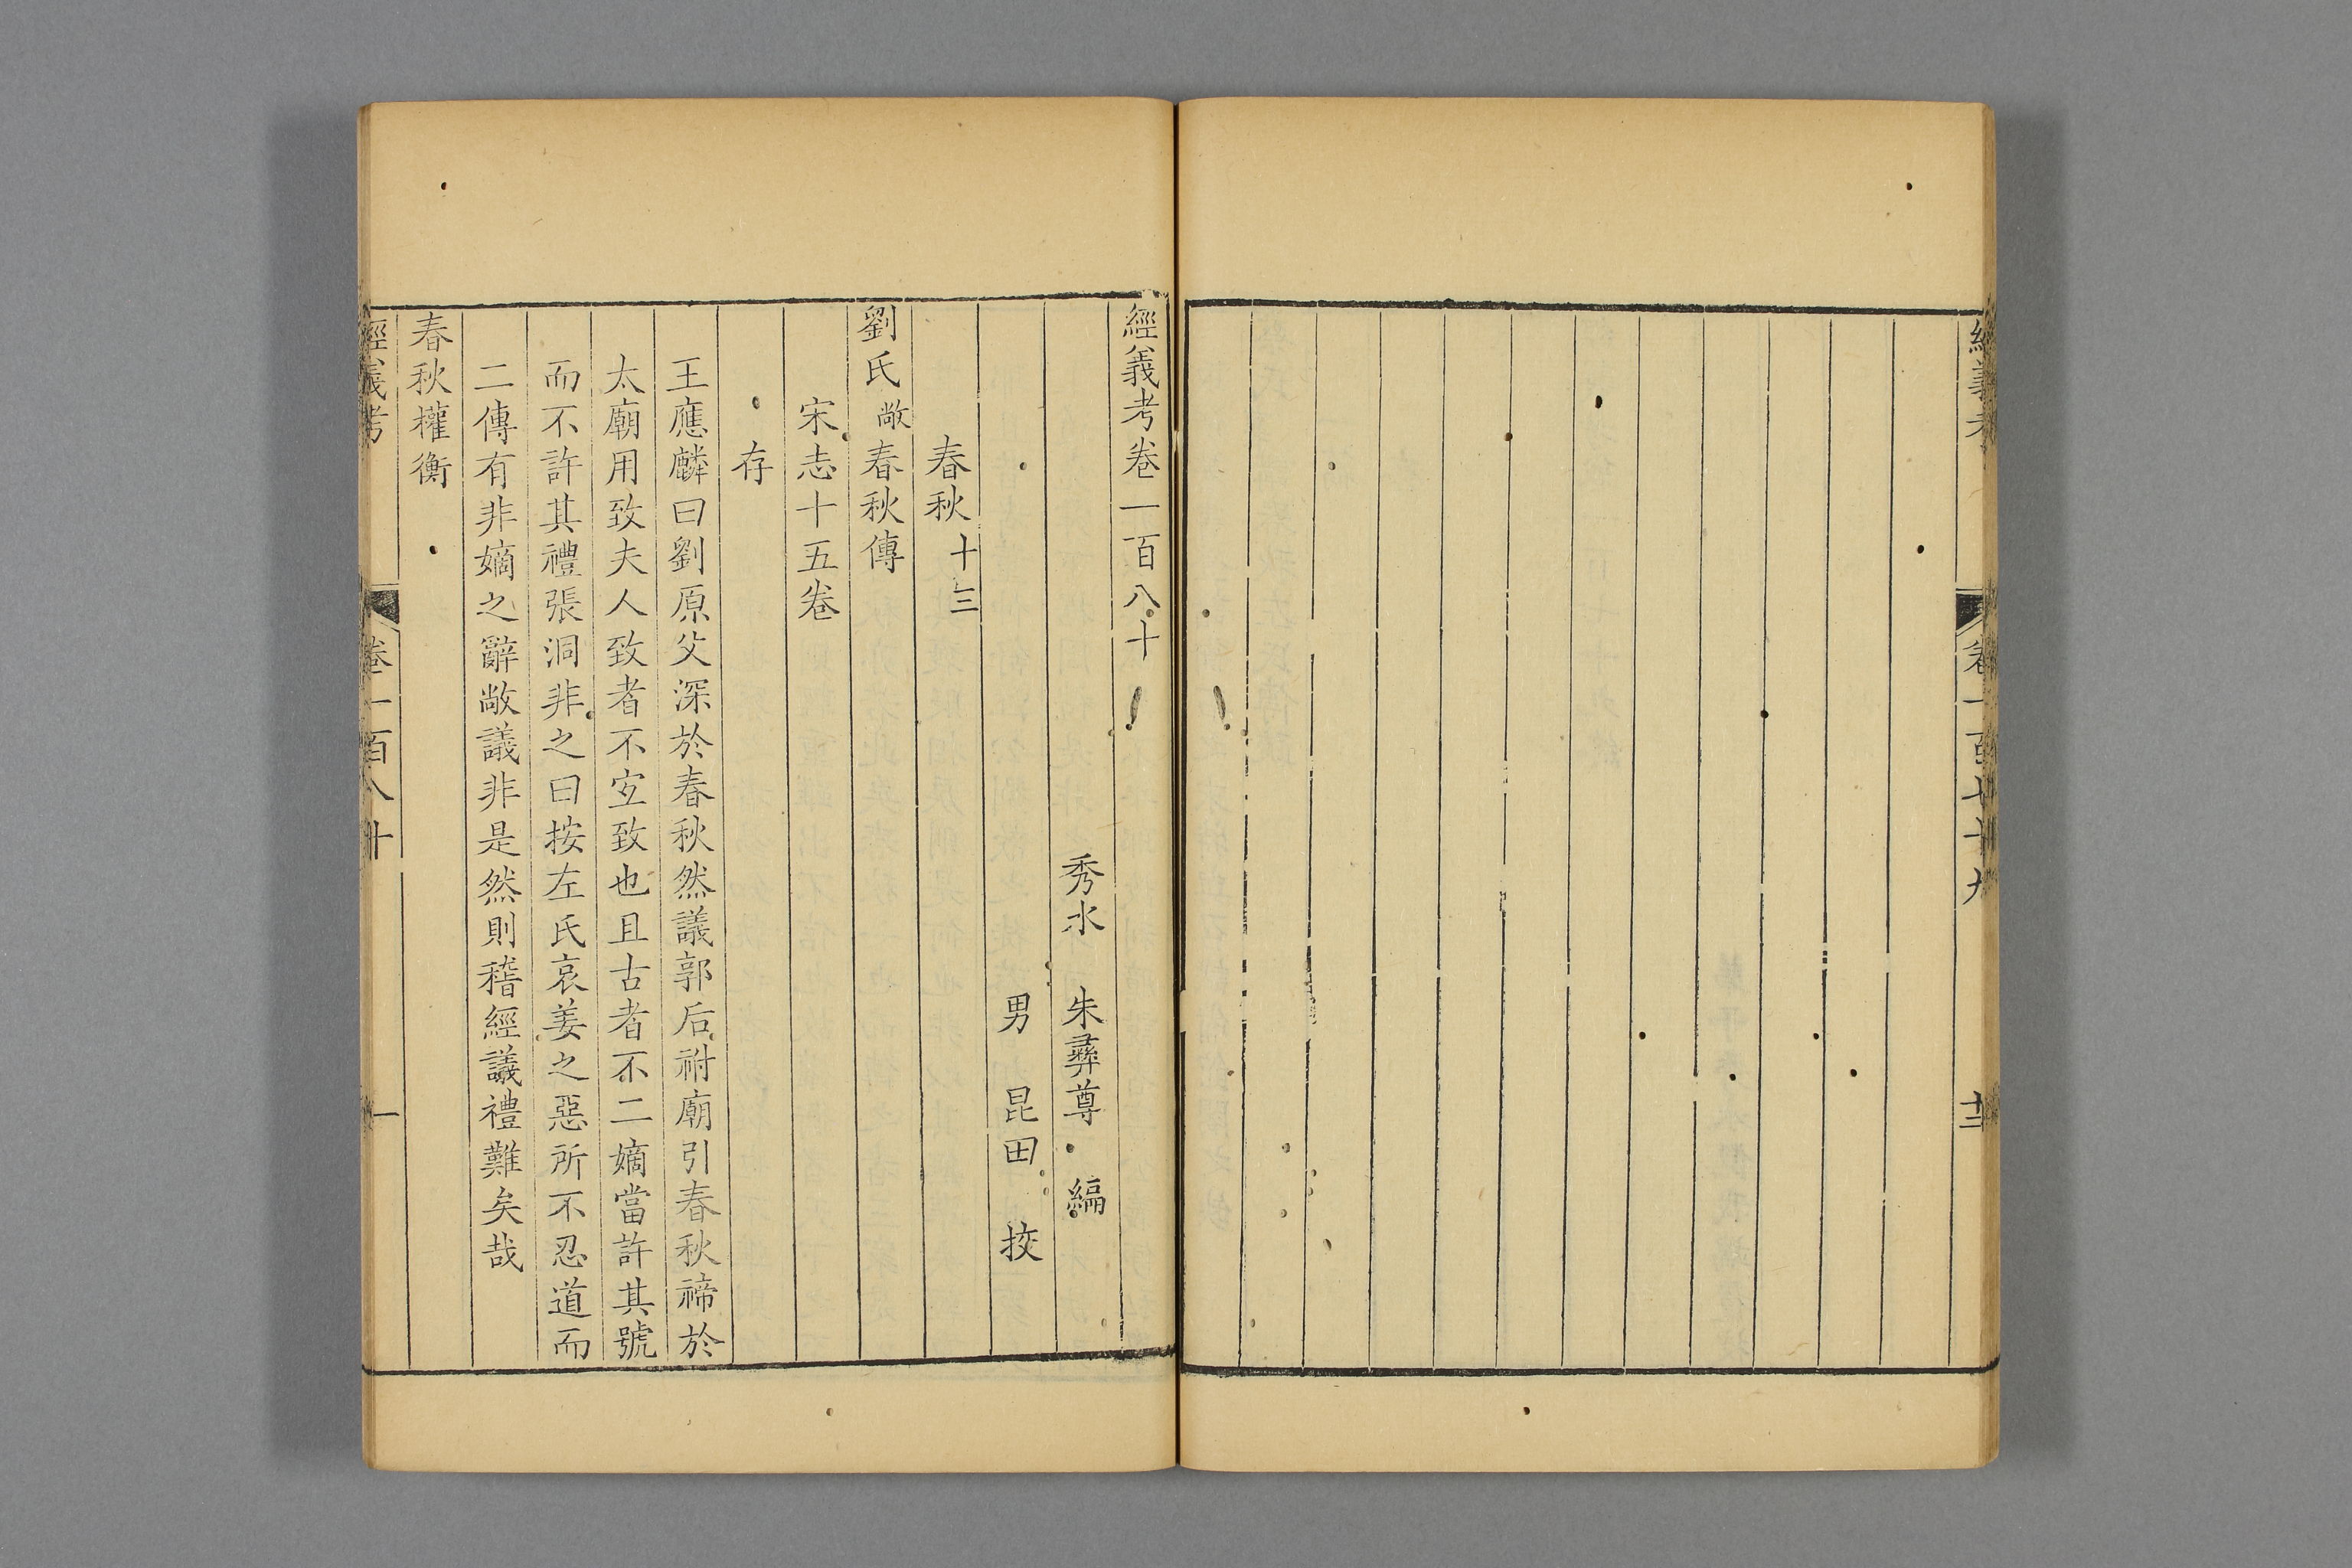 經義考
卷一百七十九
十三
經義考卷一百八十
秀水 朱彝尊 編
男 昆田 挍
春秋十三
劉氏敞春秋傳
宋志十五卷
存
王應麟曰劉原父深於春秋然議郭后祔廟引春秋禘於
太廟用致夫人致者不宐致也且古者不二嫡當許其號
而不許其禮張洞非之曰按左氏哀姜之惡所不忍道而
二傳有非嫡之辭敞議非是然則稽經議禮難矣哉
春秋權衡
經義考
卷一百八十
一